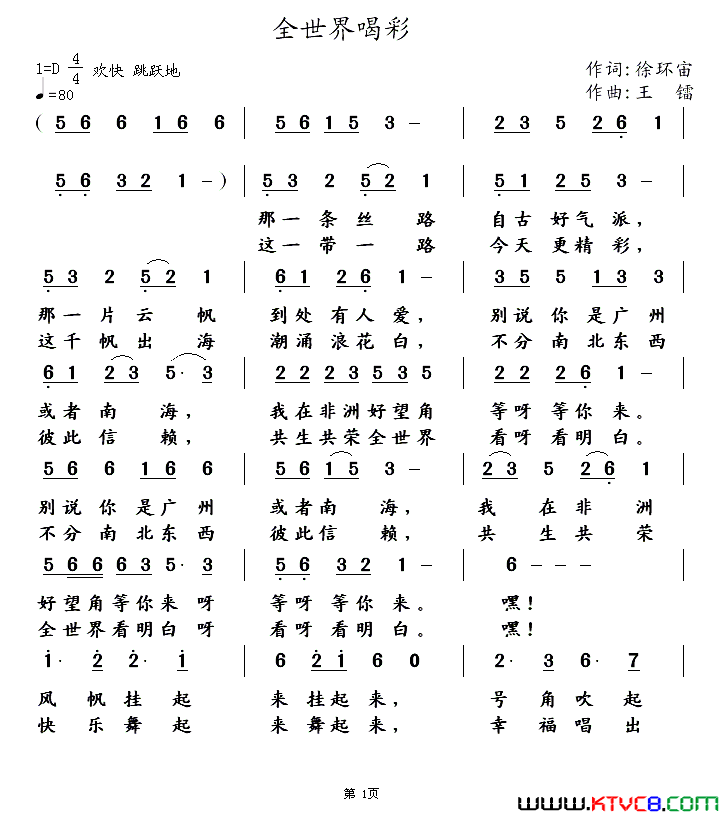 全世界喝彩
1=D 4/4 欢快 跳跃地
♩=80
作词:徐环宙
作曲:王 镭
( 5 6 6 1 6 6 | 5 6 1 5 3 – | 2 3 5 2 6 1 |
5 6 3 2 1 – ) | 5 3 2 5 2 1 | 5 1 2 5 3 – |
那一条丝路 自古好气派,
这一带一路 今天更精彩,
5 3 2 5 2 1 | 6 1 2 6 1 – | 3 5 5 1 3 3 |
那一片云帆 到处有人爱, 别说你是广州
这千帆出海 潮涌浪花白, 不分南北东西
6 1 2 3 5· 3 | 2 2 2 3 5 3 5 | 2 2 2 6 1 – |
或者南海, 我在非洲好望角 等呀等你来。
彼此信赖, 共生共荣全世界 看呀看明白。
5 6 6 1 6 6 | 5 6 1 5 3 – | 2 3 5 2 6 1 |
别说你是广州 或者南海, 我在非洲
不分南北东西 彼此信赖, 共生共荣
5 6 6 6 3 5· 3 | 5 6 3 2 1 – | 6 – – – |
好望角等你来呀 等呀等你来。 嘿!
全世界看明白呀 看呀看明白。 嘿!
1· 2 2· 1 | 6 2 1 6 0 | 2· 3 6· 7 |
风帆挂起 来挂起来, 号角吹起
快乐舞起 来舞起来, 幸福唱出
第 1页
www.KTVC8.com